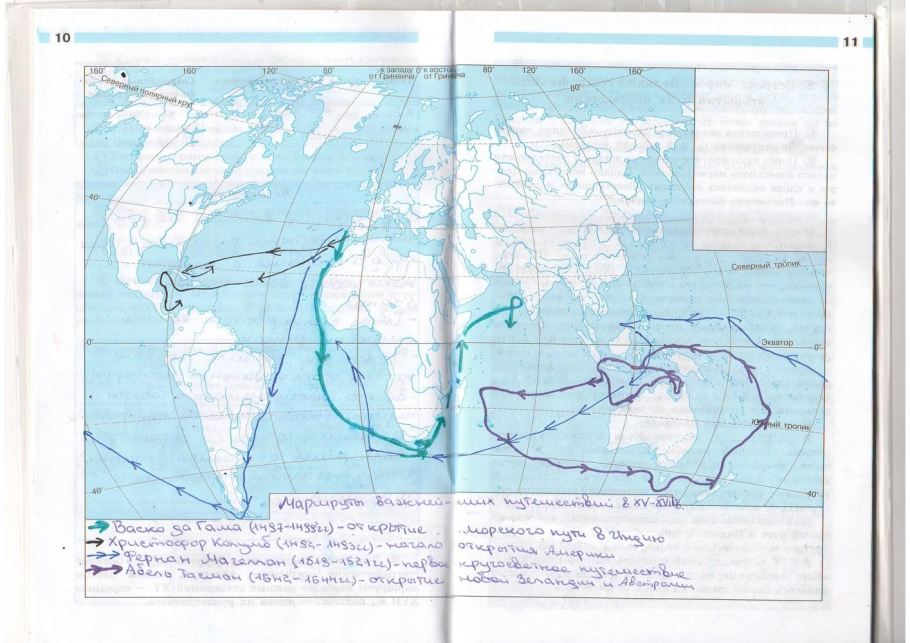 10
11
160° 160° 120° 80° к западу 0° к востоку 80° 120° 160° 160°
от Гринвича от Гринвича
Северный полярный круг
80°
40°
Северный тропик
Экватор
0° 0°
Южный тропик
40° 40°
Маршруты важней-ших путешествий в XV-XVII в.
Васко да Гама (1497-1499гг) - открытие морского пути в Индию
Христофор Колумб (1492-1493гг) - начало открытия Америки
Фернан Магеллон (1519-1521гг) - первое кругосветное путешествие
Абель Тасман (1642-1644гг) - открытие новой Зеландии и Австралии